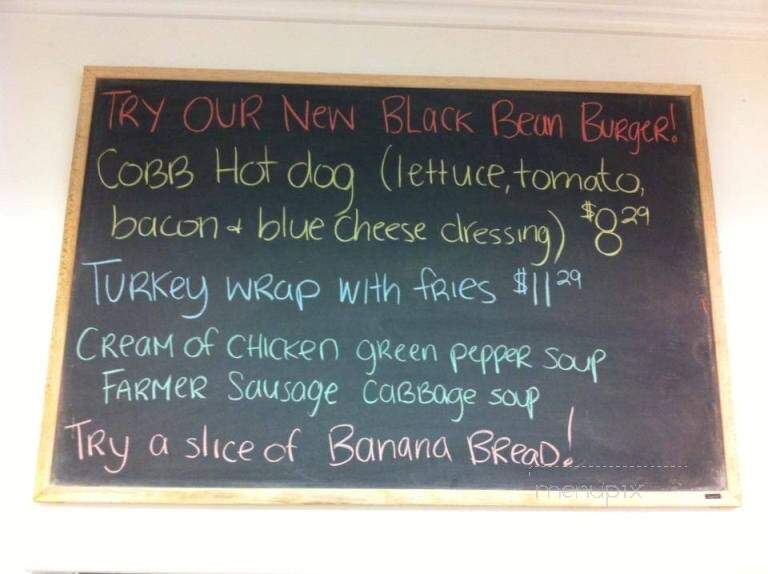 TRY OUR NEW BLack Bean BURGER!
COBB Hot dog (lettuce, tomato,
bacon & blue cheese dressing) $8 29
TURKey WRap WITH fRies $11 29
CREAM of CHICKEN gReen pepper soup
FARMER Sausage CaBBage soup
TRy a slice of Banana BReaD!
menupix